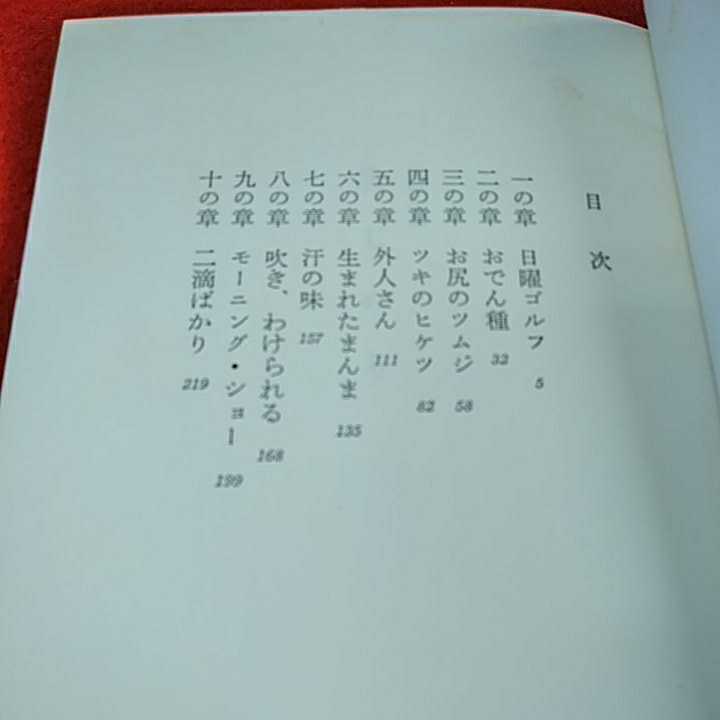 目次
一の章 日曜ゴルフ 5
二の章 おでん種 32
三の章 お尻のツムジ 58
四の章 ツキのヒケツ 82
五の章 外人さん 111
六の章 生まれたまんま 135
七の章 汗の味 157
八の章 吹き、わけられる 168
九の章 モーニング・ショー 199
十の章 二滴ばかり 219